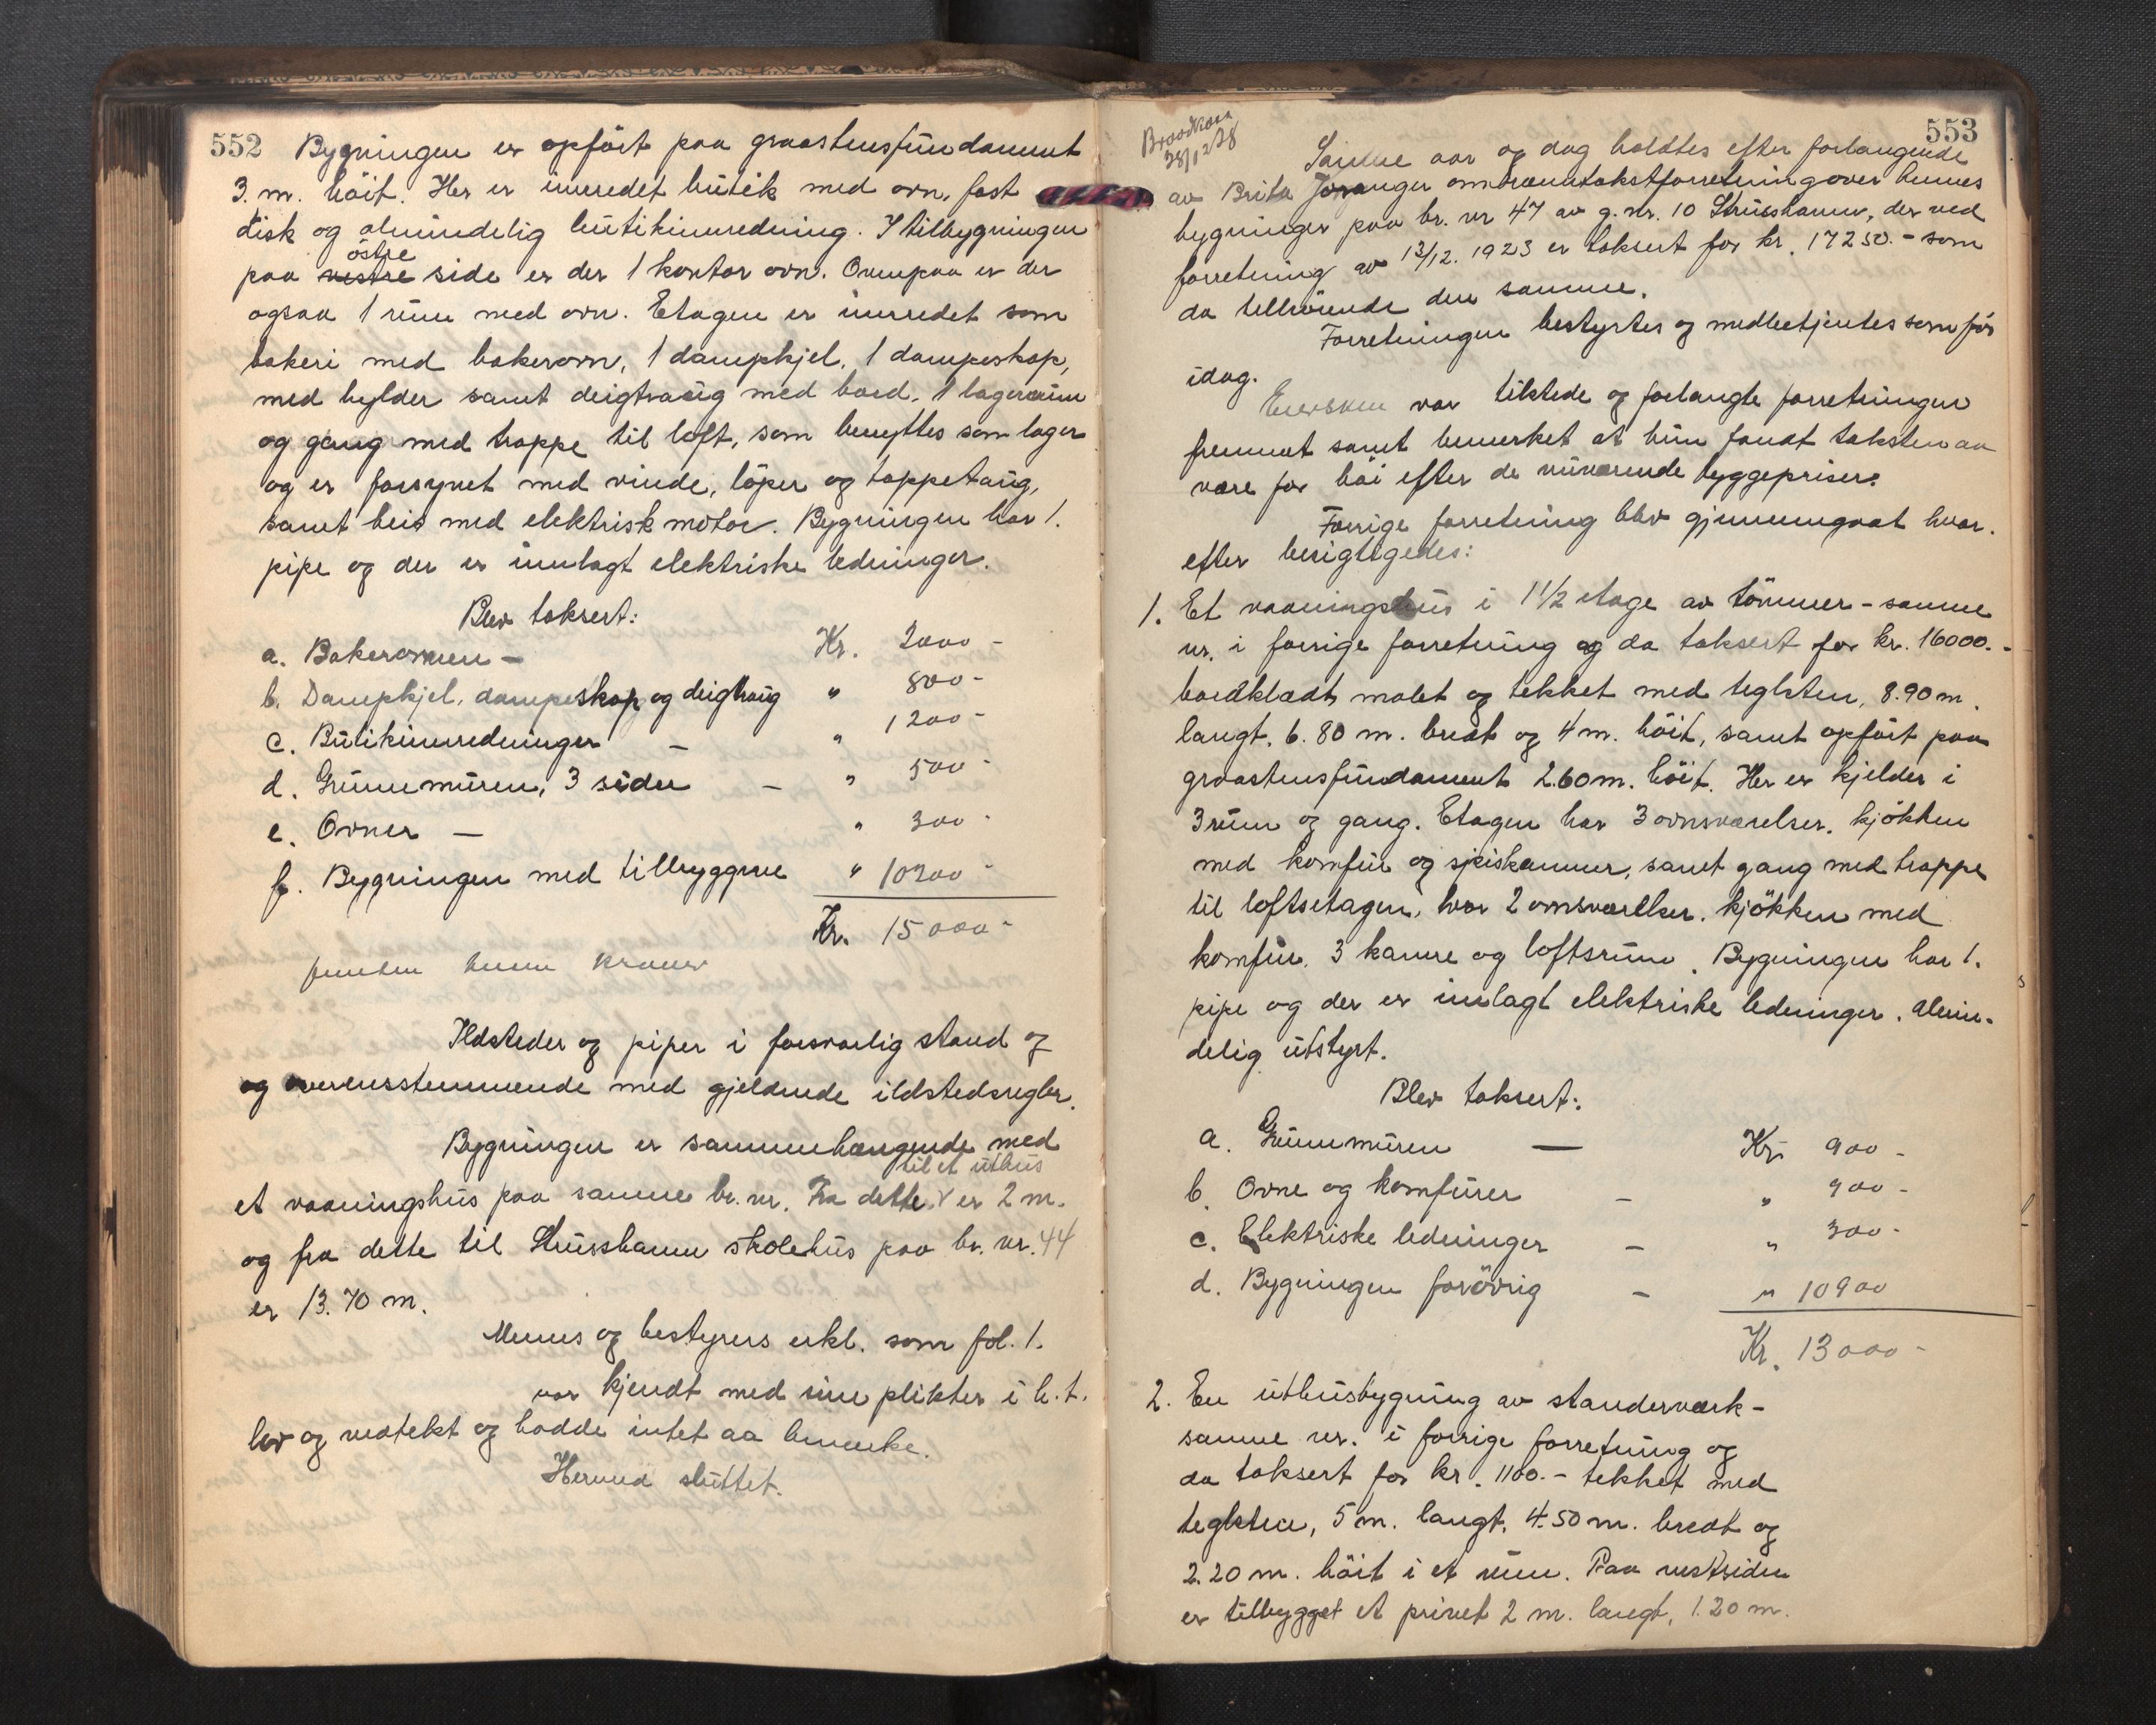 552
Bygningen er opført paa graastensfundament
3. m. höit. Her er inredet butik med ovn, fast
disk og almindelig butikinnredning. I tilbygningen
østre
paa vestre side er der 1 kontor ovn. Ovenpaa er der
ogsaa 1 rum med ovn. Etagen er innredet som
bakeri med bakerovn, 1 dampkjel, 1 dampeskap,
med hylder samt deigtraug med bord. 1 lagerrum
og gang med trappe til loft, som benyttes som lager
og er forsynet med vinde, løper og tappetaug,
samt heis med elektrisk motor. Bygningen har 1.
pipe og der er innlagt elektriske ledninger.
Blev taksert:
a. Bakerovnen — Kr. 2000 -
b. Dampkjel, dampeskap og deigtraug " 800 -
c. Butikinnredninger — " 1200 -
d. Grunnmuren, 3 sider — " 500 -
e. Ovner — " 300 -
f. Bygningen med tilbyggene " 10200 -
Kr. 15000 -
femten tusen kroner
Ildsteder og piper i forsvarlig stand og
og overensstemmende med gjeldende ildstedsregler.
Bygningen er sammenhængende med
til et uthus
et vaaningshus paa samme br. nr. Fra dette er 2 m.
og fra dette til Strusshamn skolehus paa br. nr. 44
er 13.70 m.
Menns og bestyrers erkl. som fol. 1.
var kjendt med sine plikter i h. t.
lov og vedtekt og hadde intet aa bemerke.
Hermed sluttet.
553
28/12 28
Samme aar og dag holdtes efter forlangende
av Brita Joranger ombrandtakstforretning over hennes
bygninger paa br. nr 47 av g. nr. 10 Strusshamn, der ved
forretning av 13/12. 1923 er taksert for kr. 17250.- som
da tilhørende den samme.
Forretningen bestyrtes og medbetjentes som før
idag.
Eiersken var tilstede og forlangte forretningen
fremmet samt bemerket at hun fandt taksten aa
være for høi efter de nuværende byggepriser.
Forrige forretning blev gjennemgaat hvor-
efter besigtigedes:
1. Et vaaningshus i 1 1/2 etage av tømmer - samme
nr. i forrige forretning og da taksert for kr. 16000.-
bordklædt, malet og tekket med teglsten, 8.90 m.
langt, 6.80 m. bredt og 4 m. höit, samt opført paa
graastensfundament 2.60 m. höit. Her er kjelder i
3 rum og gang. Etagen har 3 ovnsværelser, kjøkken
med komfur og spiskammer, samt gang med trappe
til loftsetagen, hvor 2 ovnsværelser, kjøkken med
komfur, 3 kamre og loftsrum. Bygningen har 1.
pipe og der er innlagt elektriske ledninger. Almin-
delig utstyrt.
Blev taksert:
a. Grunnmuren — Kr. 900 -
b. Ovne og komfurer - " 900 -
c. Elektriske ledninger - " 300 -
d. Bygningen forøvrig - " 10900
Kr. 13000 -
2. En uthusbygning av standerværk -
samme nr. i forrige forretning og
da taksert for kr. 1100.- tekket med
teglsten, 5 m. langt, 4.50 m. bredt og
2.20 m. höit i et rum. Paa vestsiden
er tilbygget et privet 2 m. langt, 1.20 m.